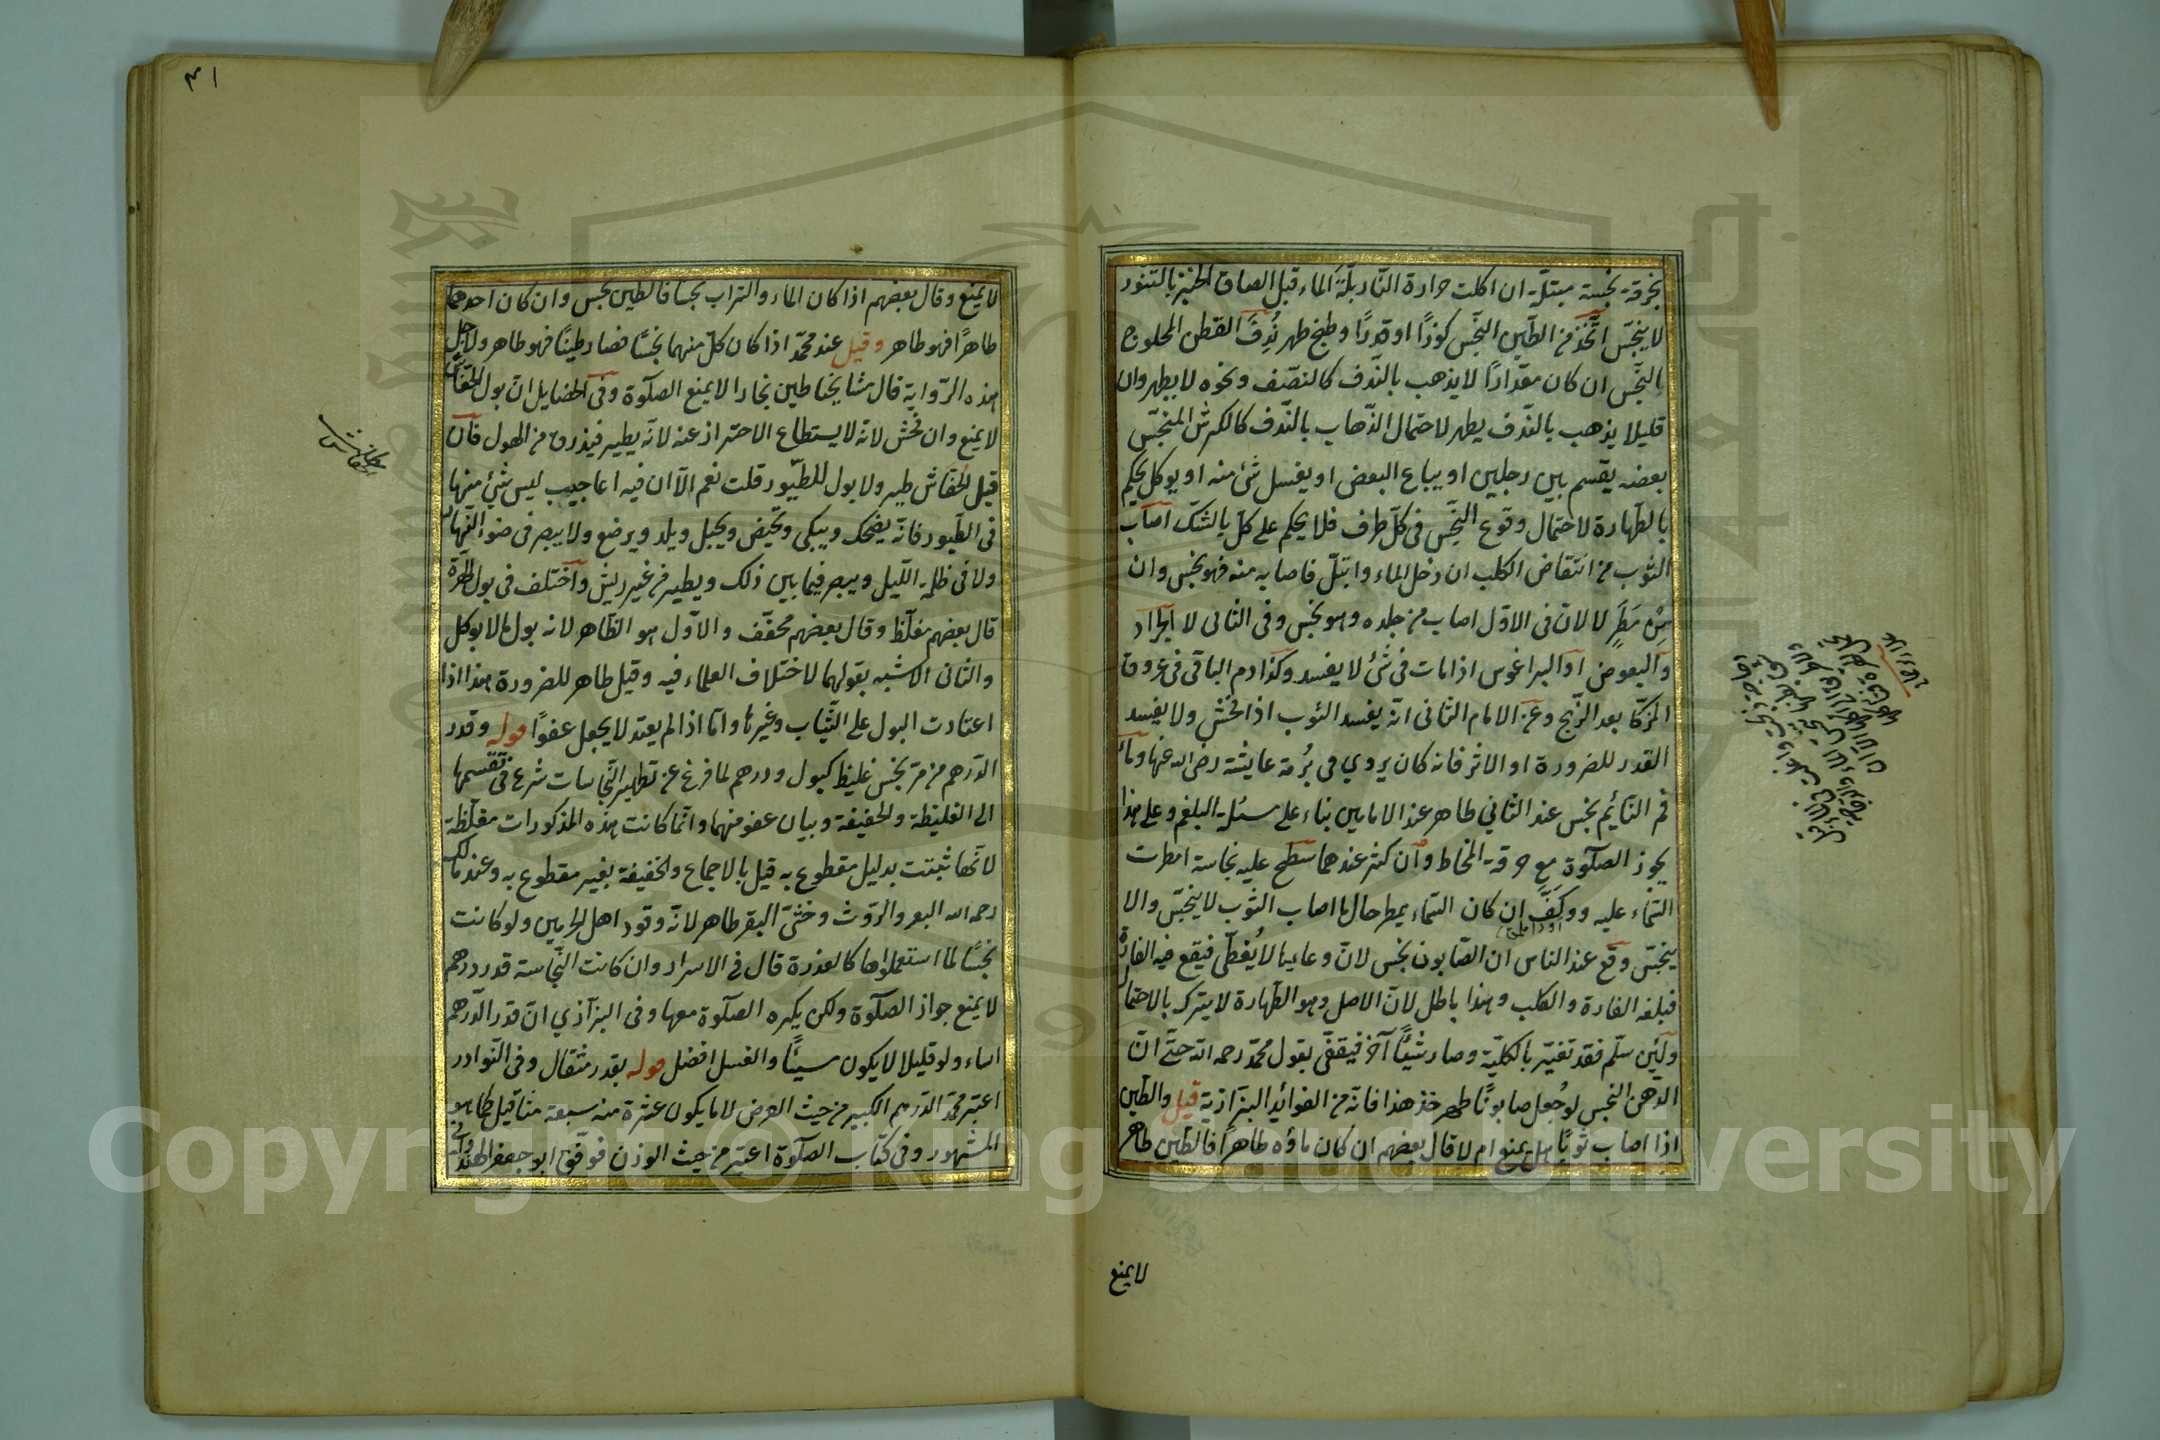 بخرقة نجسة مبتلة ان اكلت حرارة النار بلة الماء قبل الصاق الخبز بالتنور
لا ينجس اتخذ من الطين النجس كوزا او قدرا وطبخ طهر ندف القطن المحلوج
بالنجس ان كان مقدارا لا يذهب بالندف كالنصف ونحوه لا يطهر وان
قليلا يذهب بالندف يطهر لاحتمال الذهاب بالندف كالكرش المنجس
بعضه يقسم بين رجلين او يباع البعض او يغسل شئ منه او يوكل يحكم
بالطهارة لاحتمال وقوع النجس فى كل طرف فلا يحكم على كل بالشك اصاب
الثوب من انتقاض الكلب ان دخل الماء وابتل فاصابه منه فهو نجس وان
من مطر لا لان فى الاول اصاب من جلده وهو نجس وفى الثانى لا الجراد
والبعوض او البراغوس اذا مات فى شئ لا يفسد وكذا دم الباقى فى عروق
المزكا بعد الذبح وعن الامام الثانى انه يفسد الثوب اذا فحش ولا يفسد
القدر للضرورة او الاثر فانه كان يروي فى برمة عايشة رضى الله عنها وماء
فم النائم نجس عند الثاني طاهر عند الامامين بناء على مسئلة البلغم وعلى هذا
يجوز الصلوة مع خرقة المخاط وان كثر عندهما سطح عليه نجاسة امطرت
السماء عليه ووكف ان كان السماء يمطر حالها اصاب الثوب لا ينجس والا
ينجس وقع عند الناس ان الصابون نجس لان وعاءها لا يغطى فيقع فيه الفارة
فيلغه الفارة والكلب وهذا باطل لان الاصل وهو الطهارة لا يترك بالاحتمال
ولئن سلم فقد تغير بالكلية وصار شيئا آخر فيقفى بقول محمد رحمه الله حتى ان
الدهن النجس لو جعل صابونا طهر خذ هذا فانه من الفوائد البزازية قيل والطين
اذا اصاب ثوبا هل يمنع ام لا قال بعضهم ان كان ماؤه طاهرا فالطين طاهر
لا يمنع
٣١
لا يمنع وقال بعضهم اذا كان الماء والتراب نجسا فالطين نجس وان كان احدهما
طاهرا فهو طاهر وقيل عند محمد اذا كان كل منهما نجسا فصار طينا فهو طاهر ولاجل
هذه الرواية قال مشايخنا طين بخارا لا يمنع الصلوة وفى الخصايل ان بول الخفاش
لا يمنع وان فحش لانه لا يستطاع الاحتراز عنه لانه يطير فيذرق من الهول فان
قيل الخفاش طير ولا بول للطيور قلت نعم الا ان فيه اعاجيب ليس شئ منها
فى الطيور فانه يضحك ويبكى وتحيض ويحبل ويلد ويرضع ولا يبصر فى ضوء النهار
ولا فى ظلمة الليل ويبصر فيما بين ذلك ويطير من غير ريش واختلف فى بول الهرة
قال بعضهم مغلظ وقال بعضهم مخفف والاول هو الظاهر لانه بول ما لا يوكل
والثانى الاشبه بقولهما لاختلاف العلماء فيه وقيل طاهر للضرورة هذا اذا
اعتادت البول على الثياب وغيرها واما اذا لم يعتد لا يجعل عفوا قوله وقدر
الدرهم من نجس غليظ كبول ودرهم لما فرغ عن تطهير النجاسات شرع فى تقسيمها
الى الغليظة والخفيفة وبيان عفو منهما وانما كانت هذه المذكورات مغلظة
لانها ثبتت بدليل مقطوع به قيل بالاجماع والخفيفة بغير مقطوع به وعند مالك
رحمه الله البعر والروث وخثى البقر طاهر لانه وقود اهل الحرمين ولو كانت
نجسا لما استعملوها كالعذرة قال فى الاسرار وان كانت النجاسة قدر درهم
لا يمنع جواز الصلوة ولكن يكره الصلوة معها وفى البزازي ان قدر الدرهم
اساء ولو قليلا لا يكون مسيئا والغسل افضل قوله بقدر مثقال وفى النوادر
اعتبر محمد الدرهم الكبير من حيث العرض لا ما يكون عشرة منه سبعة مثاقيل كما هو
المشهور وفى كتاب الصلوة اعتبر من حيث الوزن فوفق ابو جعفر الهندوانى
Copyright © King Saud University